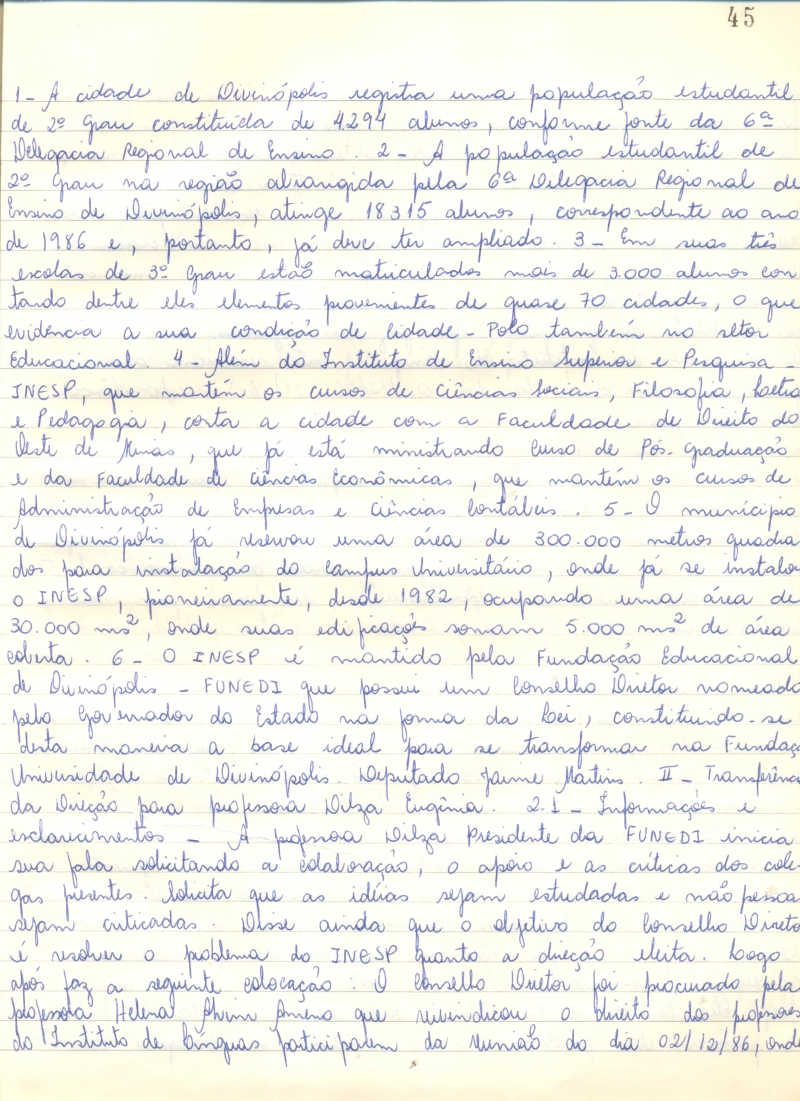 45
1 - A cidade de Divinópolis registra uma população estudantil
de 2º Grau constituída de 4.294 alunos, conforme fonte da 6ª
Delegacia Regional de Ensino. 2 - A população estudantil de
2º Grau na região abrangida pela 6ª Delegacia Regional de
Ensino de Divinópolis, atinge 18315 alunos, correspondente ao ano
de 1986 e, portanto, já deve ter ampliado. 3 - Em suas três
escolas de 3º Grau estão matriculados mais de 3.000 alunos con
tando dentre eles elementos provenientes de quase 70 cidades, o que
evidência a sua condição de Cidade - Polo também no setor
Educacional. 4 - Além do Instituto de Ensino Superior e Pesquisa -
INESP, que mantém os cursos de Ciências Sociais, Filosofia, Letra
e Pedagogia, conta a cidade com a Faculdade de Direito do
Oeste de Minas, que já está ministrando Curso de Pós-Graduação
e da Faculdade de Ciências Econômicas, que mantém os cursos de
Administração de Empresas e Ciências Contábeis. 5 - O município
de Divinópolis já reservou uma área de 300.000 metros quadra
dos para instalação do Campus Universitário, onde já se instalou
o INESP, pioneiramente, desde 1982, ocupando uma área de
30.000 ms², onde suas edificações somam 5.000 ms² de área
coberta. 6 - O INESP é mantido pela Fundação Educacional
de Divinópolis - FUNEDI que possui um Conselho Diretor nomeado
pelo Governador do Estado na forma da Lei, constituindo-se
desta maneira a base ideal para se transformar na Fundaçã
Universidade de Divinópolis. Deputado Jaime Martins. II - Transferênci
da Direção para professora Dilza Eugênia. 2.1 - Informações e
esclarecimentos - A professora Dilza Presidente da FUNEDI inicia
sua fala solicitando a colaboração, o apoio e as críticas dos cole
gas presentes. Solicita que as idéias sejam estudadas e não pessoa
sejam criticadas. Disse ainda que o objetivo do Conselho Direto
é resolver o problema do INESP quanto a direção eleita. Logo
após faz a seguinte colocação: O Conselho Diretor foi procurado pela
professora Helena Alvim Ameno que reivindicou o direito dos professores
do Instituto de Línguas participarem da reunião do dia 02/12/86, onde